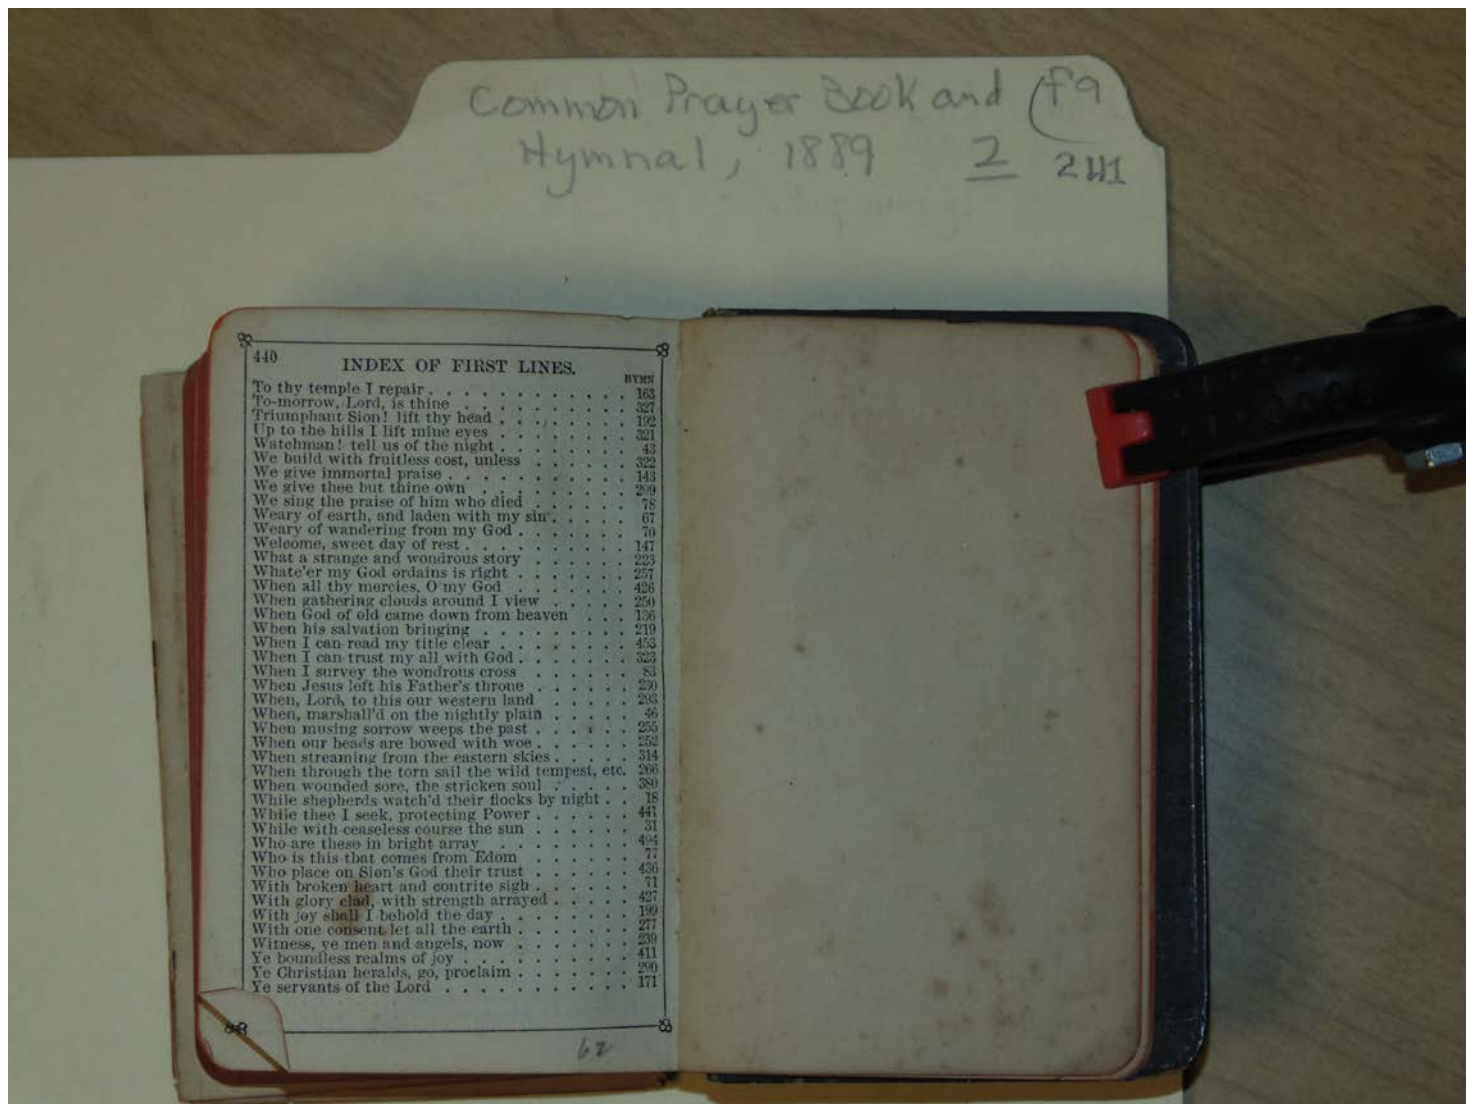 Common Prayer Book and (f9
Hymnal, 1889 2 241
440 INDEX OF FIRST LINES.
HYMN
To thy temple I repair . . . . . . . . . . . . 163
To-morrow, Lord, is thine . . . . . . . . . . 327
Triumphant Sion! lift thy head . . . . . . . . 192
Up to the hills I lift mine eyes . . . . . . . . 321
Watchman! tell us of the night . . . . . . . . 43
We build with fruitless cost, unless . . . . . . 322
We give immortal praise . . . . . . . . . . . 143
We give thee but thine own . . . . . . . . . 209
We sing the praise of him who died . . . . . . 78
Weary of earth, and laden with my sin . . . . . 67
Weary of wandering from my God . . . . . . . 70
Welcome, sweet day of rest . . . . . . . . . . 147
What a strange and wondrous story . . . . . . 223
Whate'er my God ordains is right . . . . . . . 257
When all thy mercies, O my God . . . . . . . 426
When gathering clouds around I view . . . . . 250
When God of old came down from heaven . . . 136
When his salvation bringing . . . . . . . . . 219
When I can read my title clear . . . . . . . . 453
When I can trust my all with God . . . . . . . 323
When I survey the wondrous cross . . . . . . 83
When Jesus left his Father's throne . . . . . . 230
When, Lord, to this our western land . . . . . 293
When, marshall'd on the nightly plain . . . . . 46
When musing sorrow weeps the past . . . . . . 255
When our heads are bowed with woe . . . . . . 252
When streaming from the eastern skies . . . . . 314
When through the torn sail the wild tempest, etc. 266
When wounded sore, the stricken soul . . . . . 380
While shepherds watch'd their flocks by night . . 18
While thee I seek, protecting Power . . . . . . 441
While with ceaseless course the sun . . . . . . 31
Who are these in bright array . . . . . . . . 494
Who is this that comes from Edom . . . . . . 77
Who place on Sion's God their trust . . . . . . 436
With broken heart and contrite sigh . . . . . . 71
With glory clad, with strength arrayed . . . . . 427
With joy shall I behold the day . . . . . . . . 199
With one consent let all the earth . . . . . . . 277
Witness, ye men and angels, now . . . . . . . 239
Ye boundless realms of joy . . . . . . . . . . 411
Ye Christian heralds, go, proclaim . . . . . . . 290
Ye servants of the Lord . . . . . . . . . . . 171
62